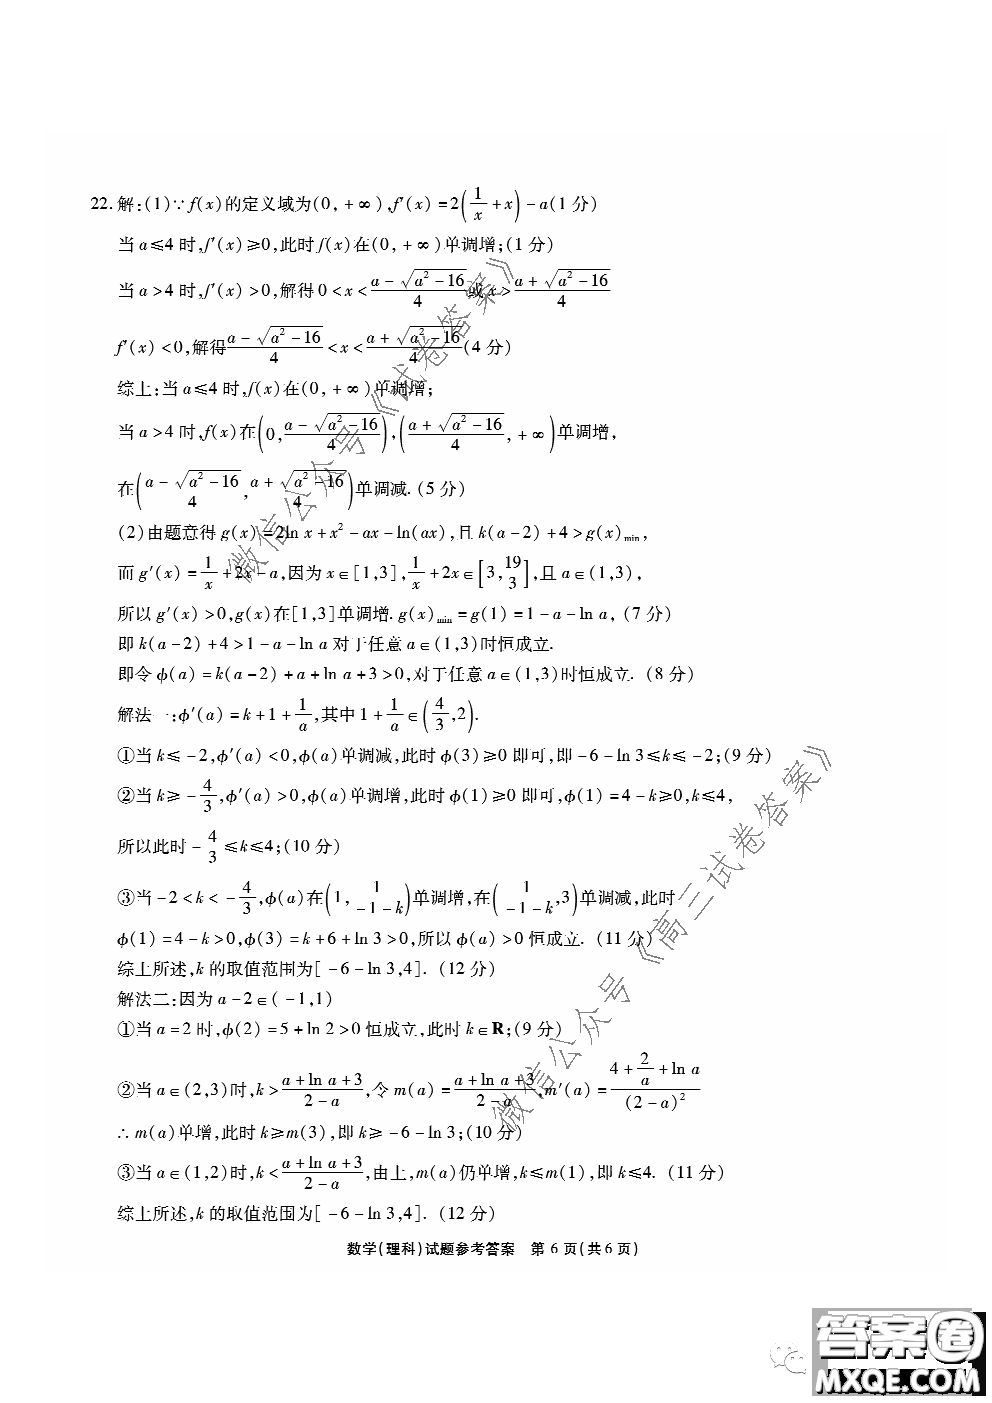 22. 解:(1)∵f(x)的定义域为(0, +∞), f′(x)=2(1/x+x)-a(1分)
当a≤4时, f′(x)≥0, 此时f(x)在(0, +∞)单调增;(1分)
当a>4时, f′(x)>0, 解得0<x<(a-√(a²-16))/4或x>(a+√(a²-16))/4
f′(x)<0, 解得(a-√(a²-16))/4<x<(a+√(a²-16))/4(4分)
综上:当a≤4时, f(x)在(0, +∞)单调增;
当a>4时, f(x)在(0, (a-√(a²-16))/4), ((a+√(a²-16))/4, +∞)单调增,
在((a-√(a²-16))/4, (a+√(a²-16))/4)单调减. (5分)
(2)由题意得g(x)=2ln x+x²-ax-ln(ax), 且k(a-2)+4>g(x)min,
而g′(x)=1/x+2x-a, 因为x∈[1,3], 1/x+2x∈[3, 19/3], 且a∈(1,3),
所以g′(x)>0, g(x)在[1,3]单调增. g(x)min=g(1)=1-a-ln a, (7分)
即k(a-2)+4>1-a-ln a对于任意a∈(1,3)时恒成立.
即令φ(a)=k(a-2)+a+ln a+3>0, 对于任意a∈(1,3)时恒成立. (8分)
解法一:φ′(a)=k+1+1/a, 其中1+1/a∈(4/3, 2).
①当k≤-2, φ′(a)<0, φ(a)单调减, 此时φ(3)≥0即可, 即-6-ln 3≤k≤-2;(9分)
②当k≥-4/3, φ′(a)>0, φ(a)单调增, 此时φ(1)≥0即可, φ(1)=4-k≥0, k≤4,
所以此时-4/3≤k≤4;(10分)
③当-2<k<-4/3, φ(a)在(1, 1/(-1-k))单调增, 在(1/(-1-k), 3)单调减, 此时
φ(1)=4-k>0, φ(3)=k+6+ln 3>0, 所以φ(a)>0恒成立. (11分)
综上所述, k的取值范围为[-6-ln 3, 4]. (12分)
解法二:因为a-2∈(-1,1)
①当a=2时, φ(2)=5+ln 2>0恒成立, 此时k∈R;(9分)
②当a∈(2,3)时, k>(a+ln a+3)/(2-a), 令m(a)=(a+ln a+3)/(2-a), m′(a)=(4+2/a+ln a)/(2-a)²
∴m(a)单增, 此时k≥m(3), 即k≥-6-ln 3;(10分)
③当a∈(1,2)时, k<(a+ln a+3)/(2-a), 由上, m(a)仍单增, k≤m(1), 即k≤4. (11分)
综上所述, k的取值范围为[-6-ln 3, 4]. (12分)
数学(理科)试题参考答案 第6页(共6页)
微信公众号《试卷答案》
微信公众号《高三试卷答案》
答案圈
MXQE.COM